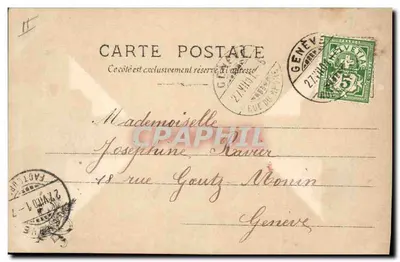 II
CARTE POSTALE
Ce côté est exclusivement réservé à l'adresse
GENÈVE
27.VII.01
RUE DU
GENÈVE
27.VII
HELVETIA
5
Mademoiselle
Joséphine Ravier
18 rue Gautz-Monin
Genève
FACT
27.VII.01
cartorum